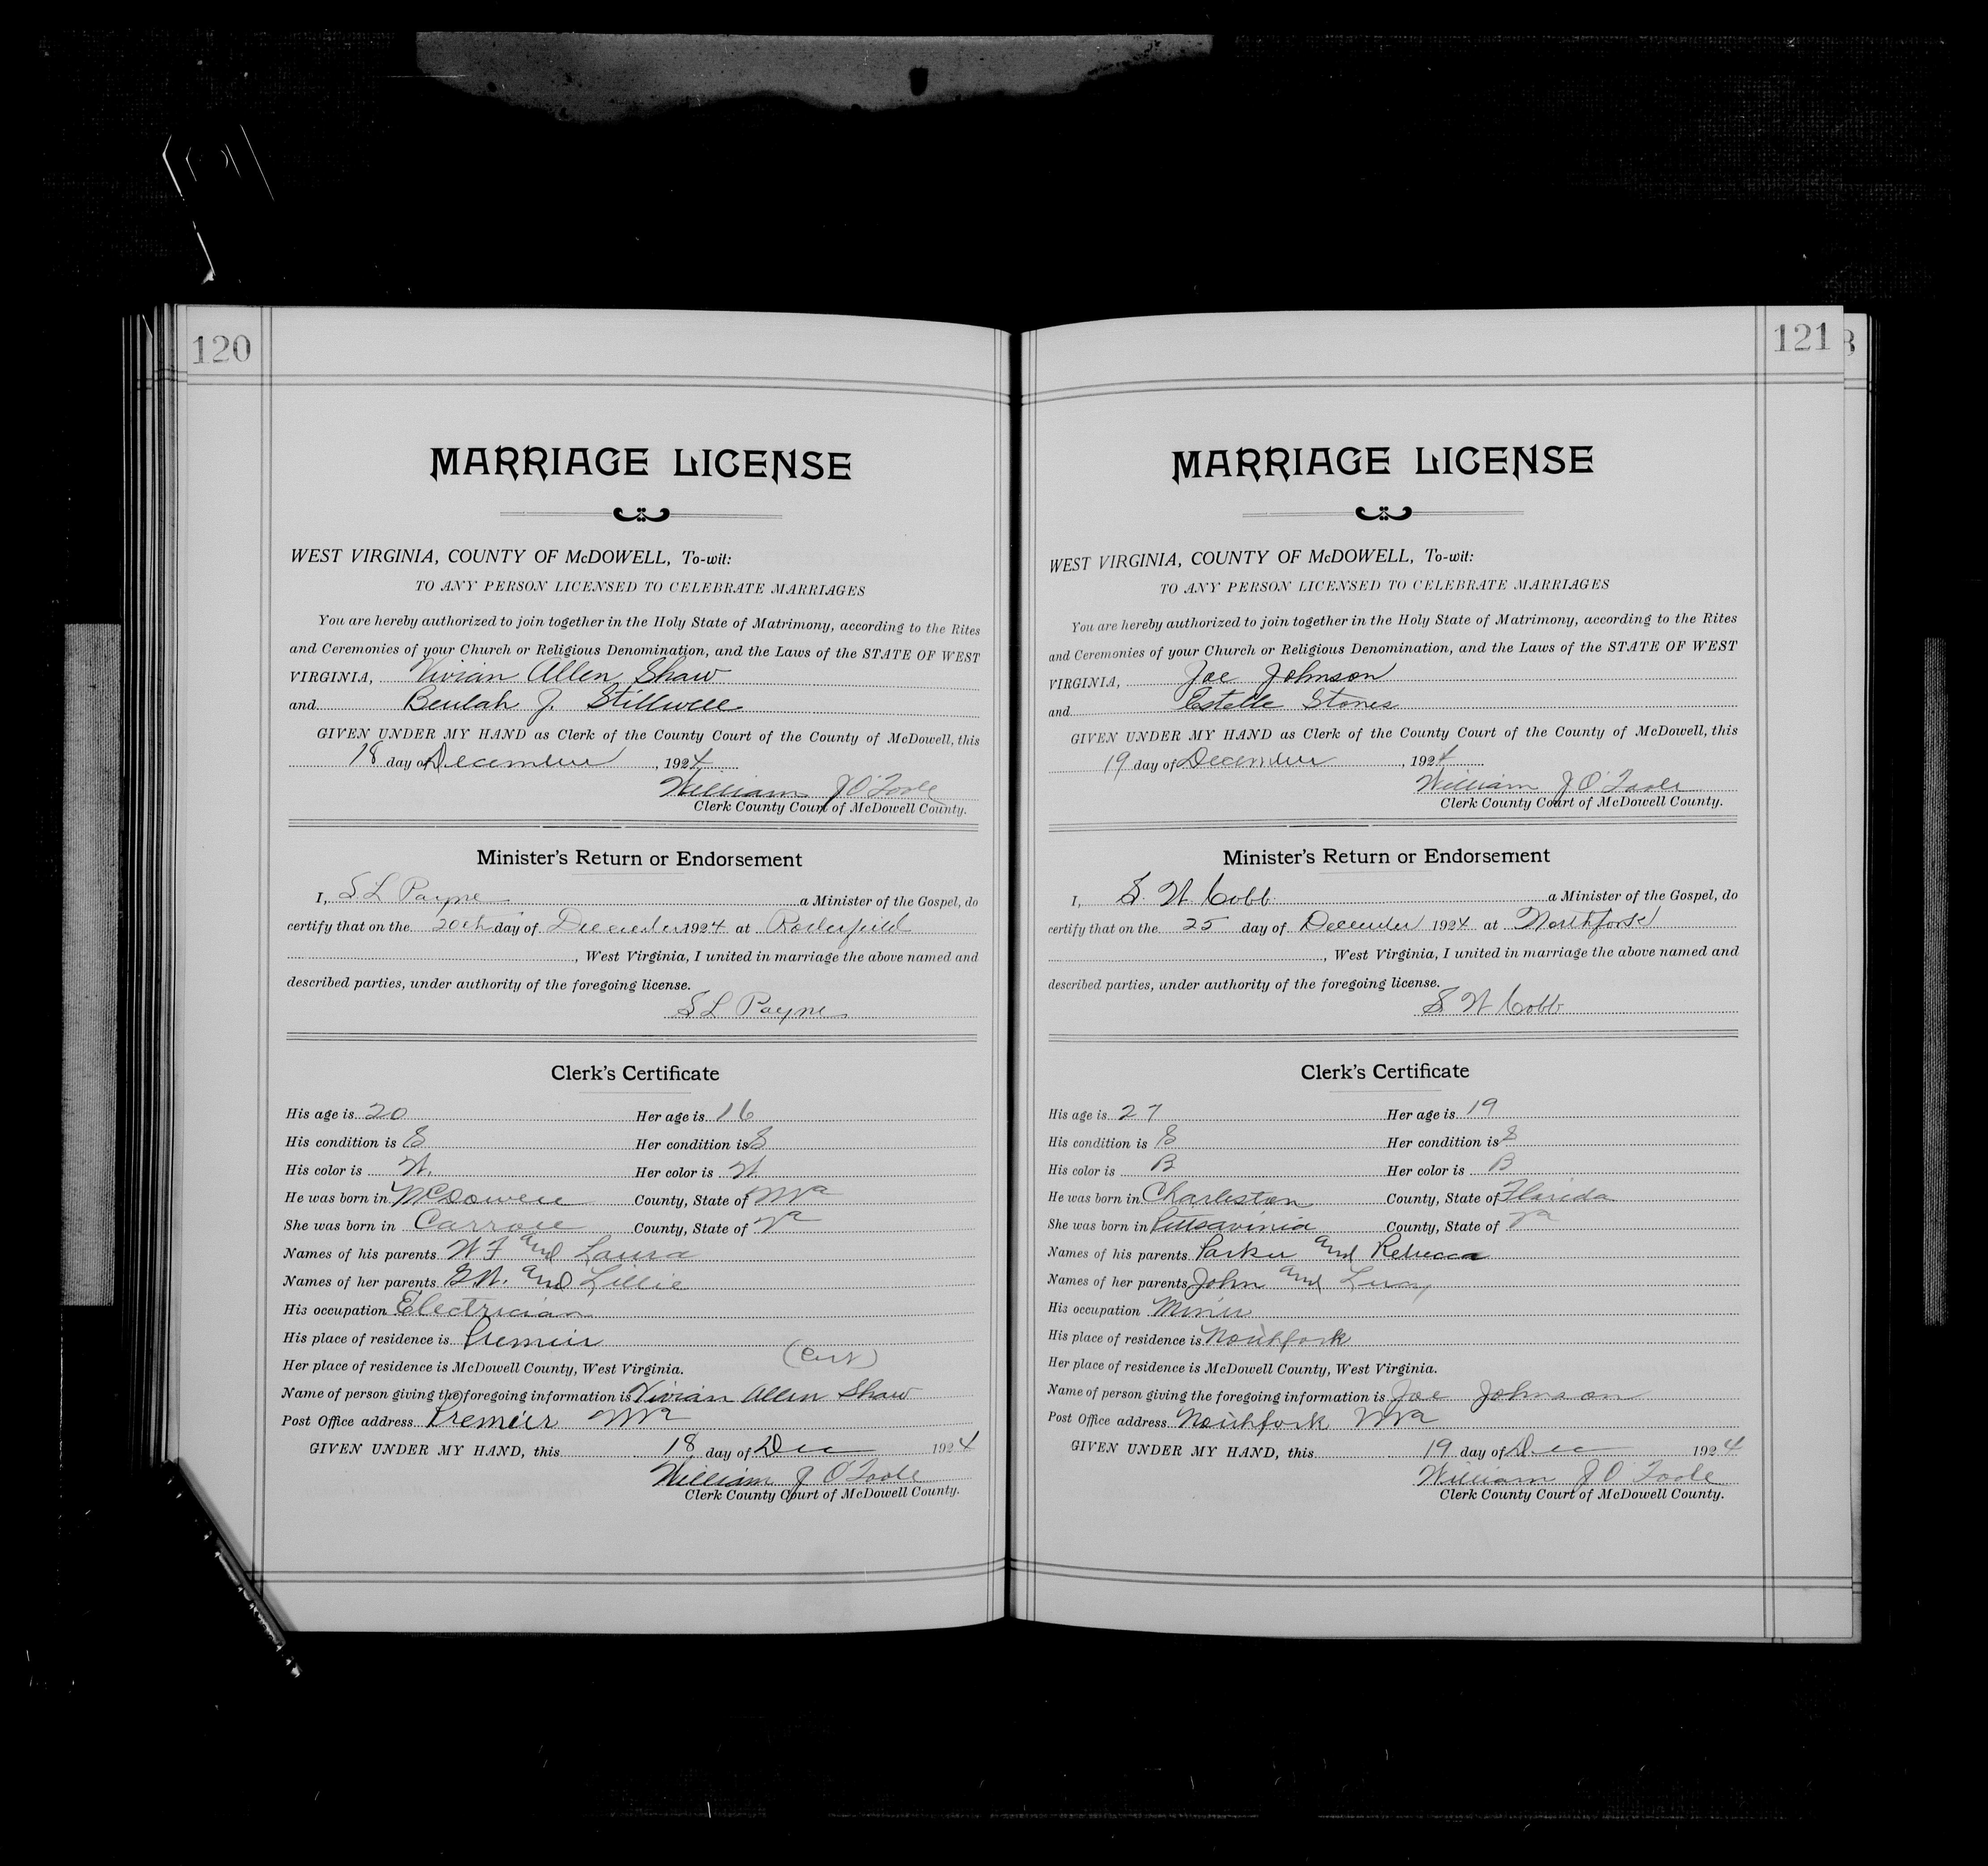 120
MARRIAGE LICENSE
WEST VIRGINIA, COUNTY OF McDOWELL, To-wit:
TO ANY PERSON LICENSED TO CELEBRATE MARRIAGES
You are hereby authorized to join together in the Holy State of Matrimony, according to the Rites
and Ceremonies of your Church or Religious Denomination, and the Laws of the STATE OF WEST
VIRGINIA, Vivian Allen Shaw
and Beulah J. Stillwell
GIVEN UNDER MY HAND as Clerk of the County Court of the County of McDowell, this
18 day of December, 1924
William J O'Toole
Clerk County Court of McDowell County.
Minister's Return or Endorsement
I, S L Payne a Minister of the Gospel, do
certify that on the 20th day of December 1924 at Roderfield
, West Virginia, I united in marriage the above named and
described parties, under authority of the foregoing license.
S L Payne
Clerk's Certificate
His age is 20 Her age is 16
His condition is S Her condition is S
His color is W. Her color is W
He was born in McDowell County, State of WVa
She was born in Carroll County, State of Va
Names of his parents W F and Laura
Names of her parents G W. and Lillie
His occupation Electrician
His place of residence is Premeir
Her place of residence is McDowell County, West Virginia. (Cert)
Name of person giving the foregoing information is Vivian Allen Shaw
Post Office address Premeir WVa
GIVEN UNDER MY HAND, this 18 day of Dec 1924
William J O'Toole
Clerk County Court of McDowell County.
121
MARRIAGE LICENSE
WEST VIRGINIA, COUNTY OF McDOWELL, To-wit:
TO ANY PERSON LICENSED TO CELEBRATE MARRIAGES
You are hereby authorized to join together in the Holy State of Matrimony, according to the Rites
and Ceremonies of your Church or Religious Denomination, and the Laws of the STATE OF WEST
VIRGINIA, Joe Johnson
and Estelle Stones
GIVEN UNDER MY HAND as Clerk of the County Court of the County of McDowell, this
19 day of December, 1924
William J O'Toole
Clerk County Court of McDowell County.
Minister's Return or Endorsement
I, S. W. Cobb. a Minister of the Gospel, do
certify that on the 25 day of December 1924 at Northfork
, West Virginia, I united in marriage the above named and
described parties, under authority of the foregoing license.
S W Cobb
Clerk's Certificate
His age is 27 Her age is 19
His condition is S Her condition is S
His color is B Her color is B
He was born in Charleston County, State of Florida
She was born in Pittsavinia County, State of Va
Names of his parents Parker and Rebecca
Names of her parents John and Lucy
His occupation Miner
His place of residence is Northfork
Her place of residence is McDowell County, West Virginia.
Name of person giving the foregoing information is Joe Johnson
Post Office address Northfork WVa
GIVEN UNDER MY HAND, this 19 day of Dec 1924
William J O'Toole
Clerk County Court of McDowell County.